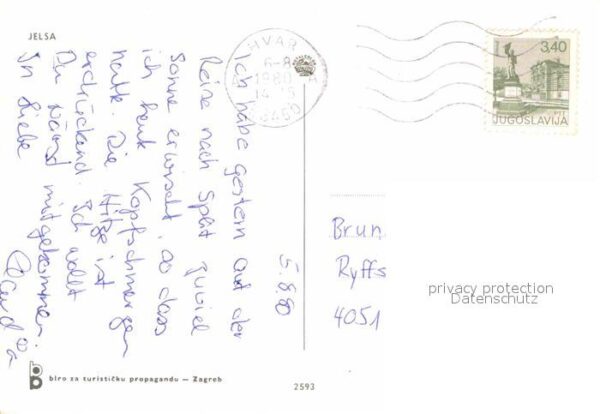 JELSA
HVAR
6-8
1980
14
58450
3,40
JUGOSLAVIJA
5.8.80
Ich habe gestern auf der
Reise nach Split zuviel
Sonne erwischt, so dass
ich heut Kopfschmerzen
hatte. Die Hitze ist
erdrückend. Ich wollt
Du wärst mitgekommen.
In Liebe
Brun
Ryffs
4051
privacy protection
Datenschutz
biro za turističku propagandu — Zagreb
2593